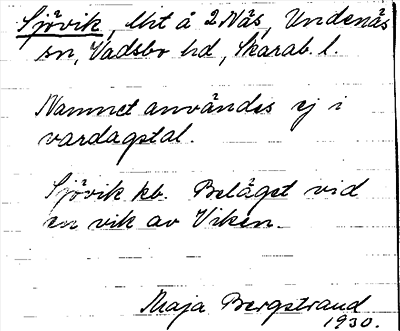 Sjövik, lht å 2 Näs, Undenäs
sn, Vadsbo hd, Skarab. l.
Namnet användes ej i
vardagstal.
Sjövik kb. Beläget vid
en vik av Viken.
Maja Bergstrand
1930.